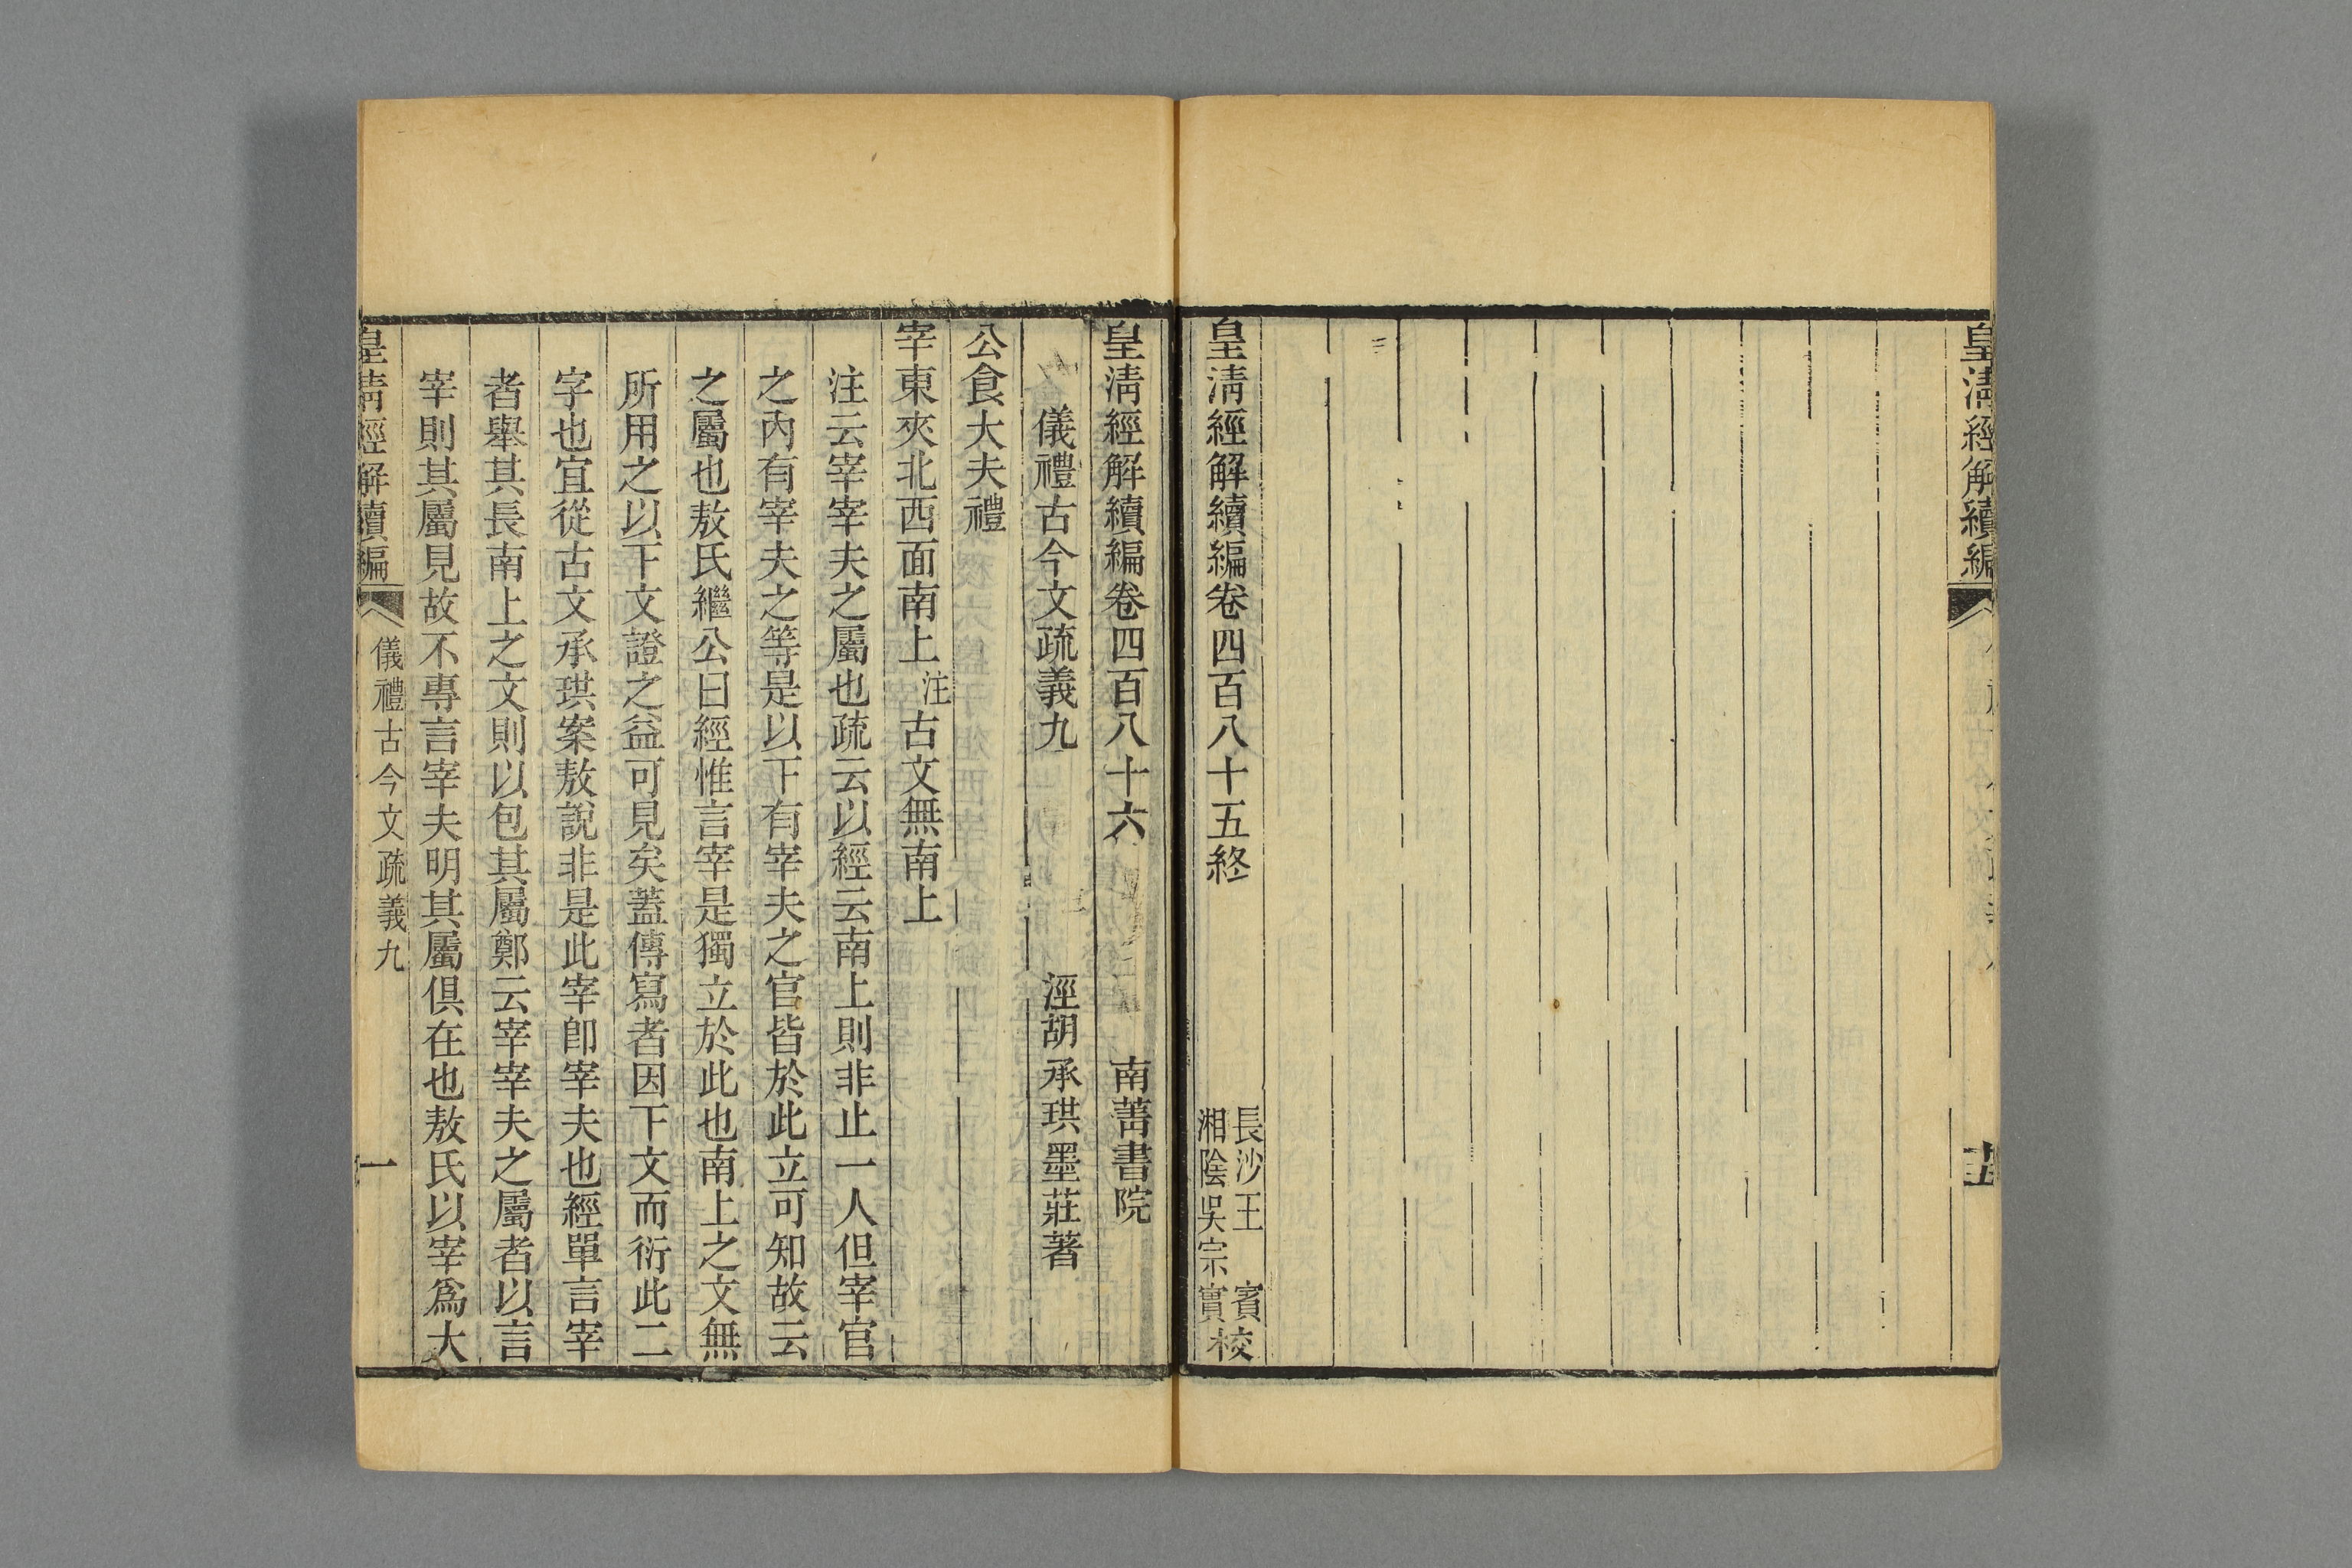 皇清經解續編
皇清經解續編卷四百八十五終
長沙王　賓
湘陰吳宗實校
皇清經解續編卷四百八十六　南菁書院
儀禮古今文疏義九　涇胡承珙墨莊著
公食大夫禮
宰東夾北西面南上注古文無南上
注云宰宰夫之屬也疏云以經云南上則非止一人但宰官
之內有宰夫之等是以下有宰夫之官皆於此立可知故云
之屬也敖氏繼公曰經惟言宰是獨立於此也南上之文無
所用之以下文證之益可見矣蓋傳寫者因下文而衍此二
字也宜從古文承珙案敖說非是此宰卽宰夫也經單言宰
者舉其長南上之文則以包其屬鄭云宰宰夫之屬者以言
宰則其屬見故不專言宰夫明其屬俱在也敖氏以宰爲大
皇清經解續編　儀禮古今文疏義九　一